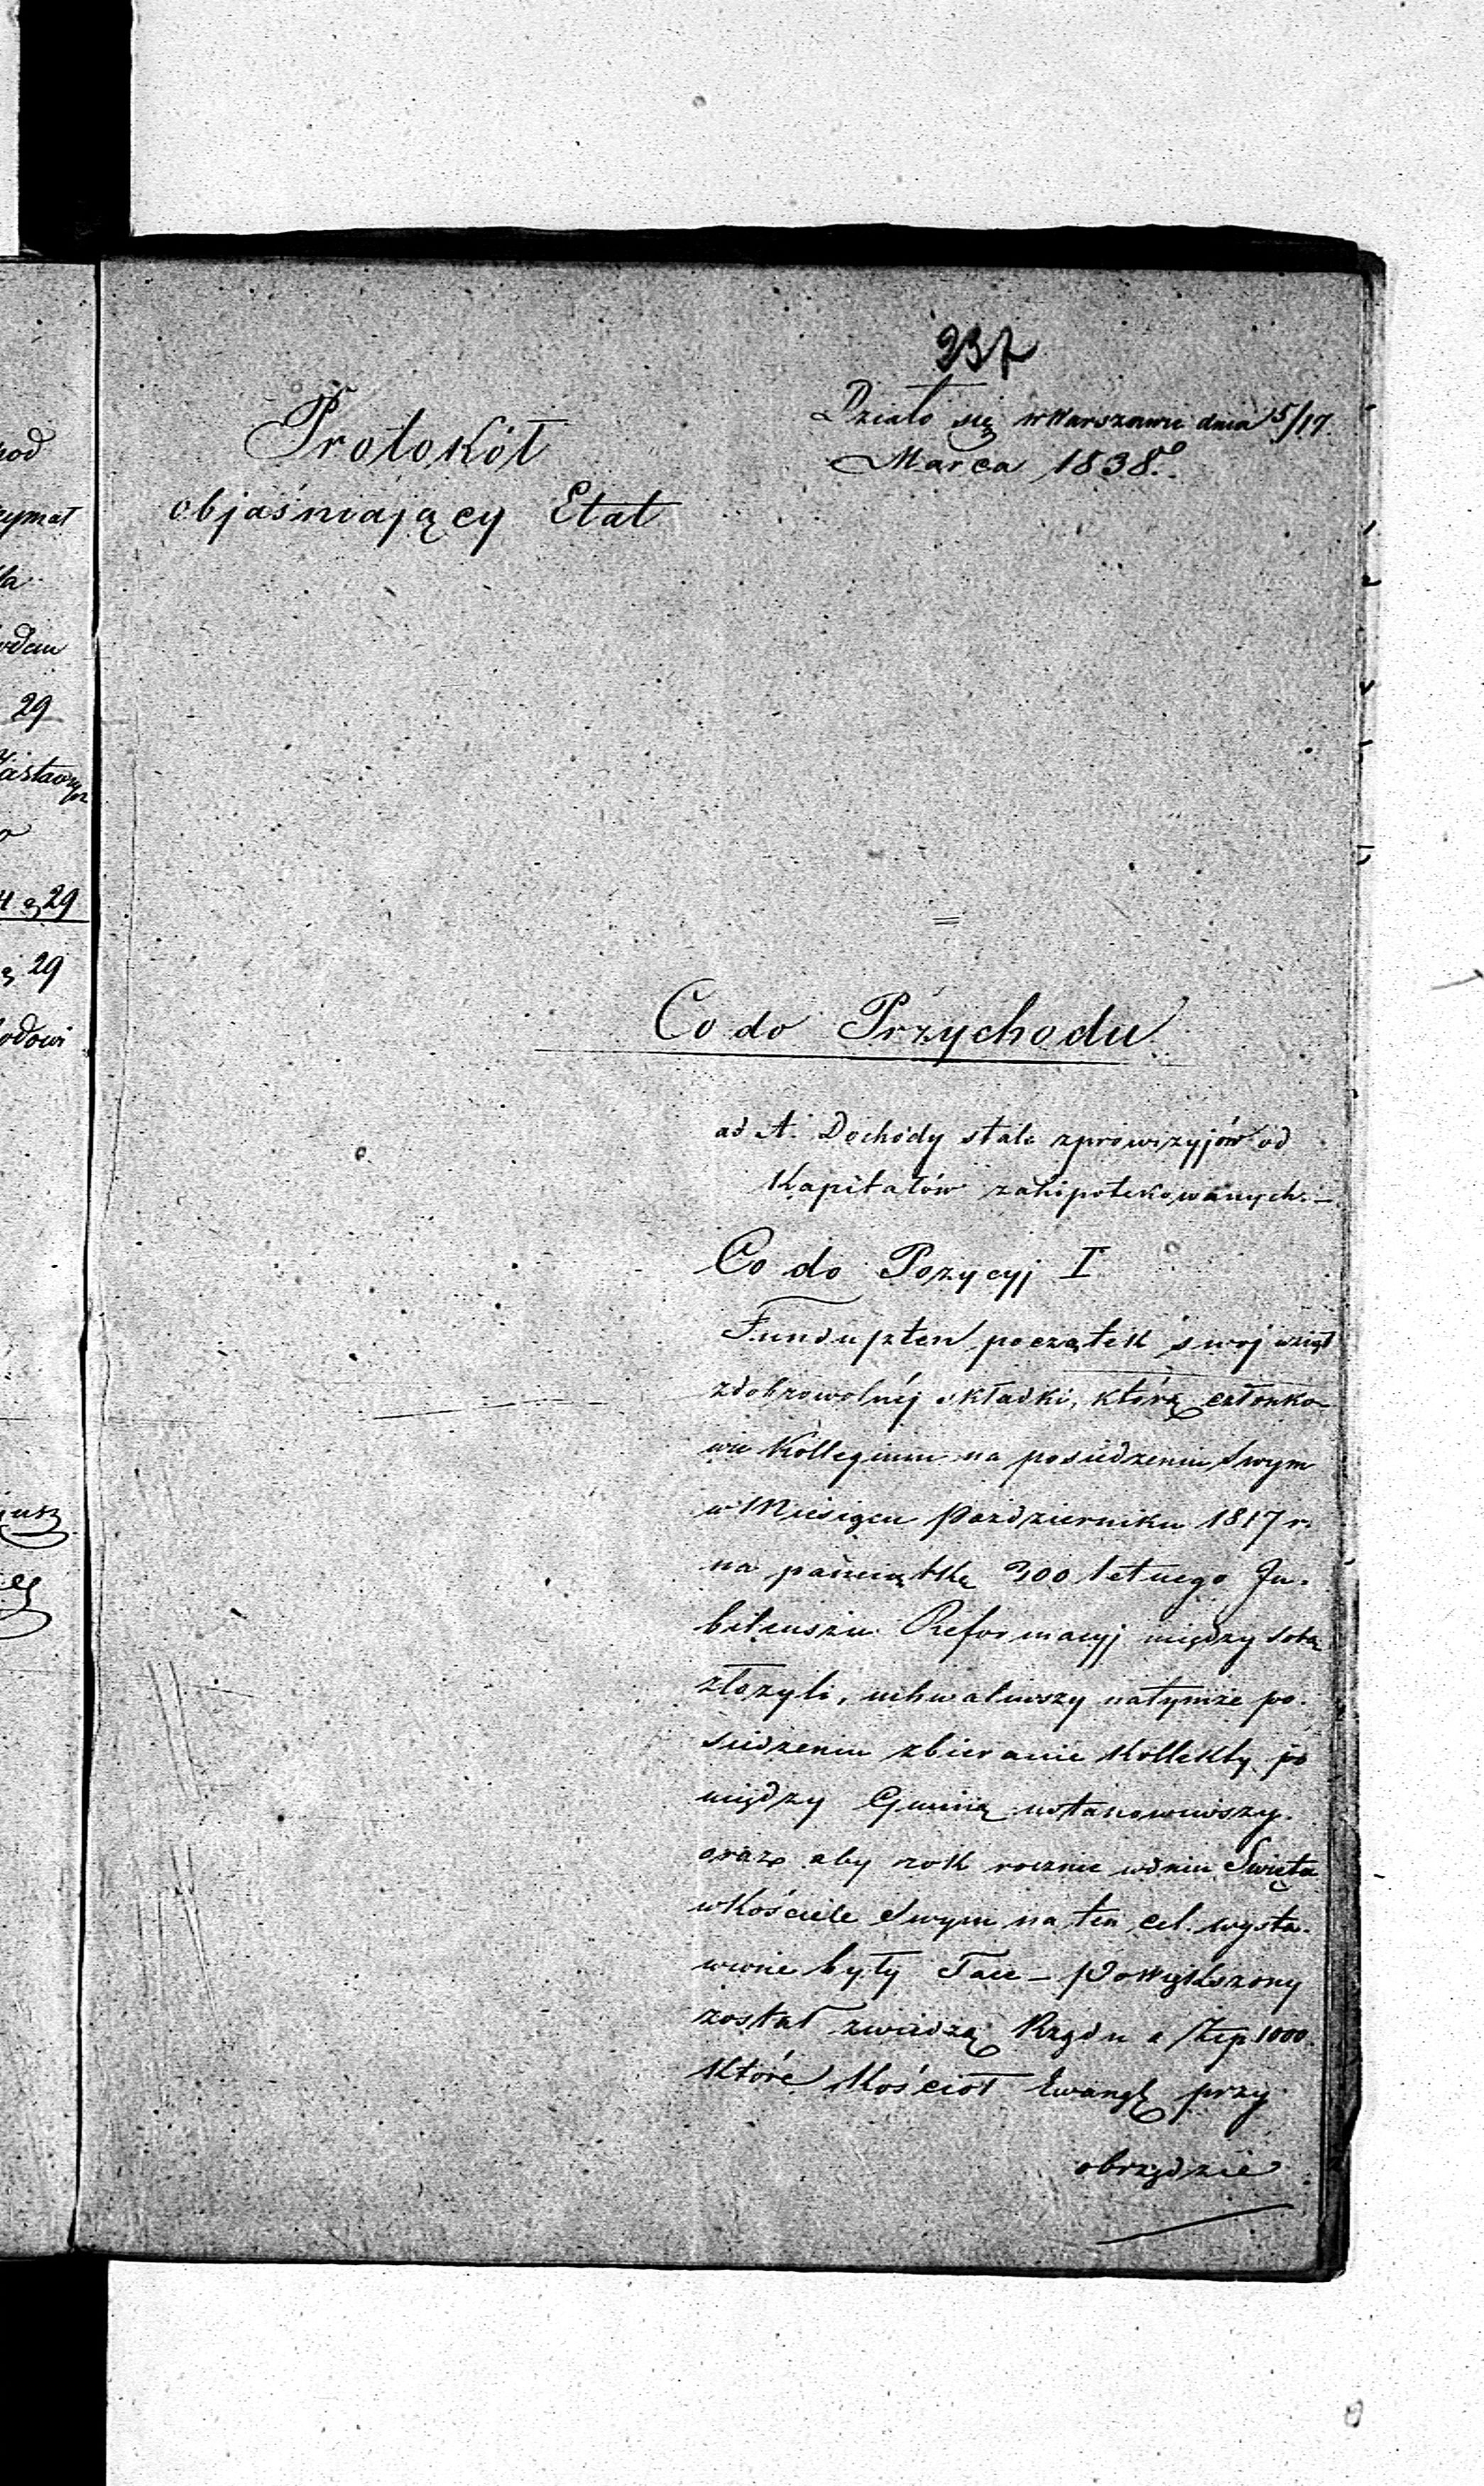 237
Działo się w Warszawie dnia 5/17
Marca 1838.
Protokół
objaśniający Etat
Co do Przychodu
ad A. Dochody stałe z prowizyjów od
Kapitałów zahipotekowanych. –
Co do Pozycyj I
Fundusz ten początek swój wziął
z dobrowolnéj składki, którą członko-
wie Kollegium na posiedzeniu swym
w Miesiącu Październiku 1817 r.
na pamiątkę 300 letnego Ju-
bileuszu Reformacyj między sobą
złożyli, uchwaliwszy na tymże po-
siedzeniu zbieranie Kollekty po
między Gminą ustanowiwszy
oraz aby rok rocznie w dniu Święta
w Kościele swym na ten cel wysta-
wione były Tace – Powiększony
został z wiedzą Rządu o Złp 1000.
które Kościoł Ewang. przy
obrządzie
29
29
29